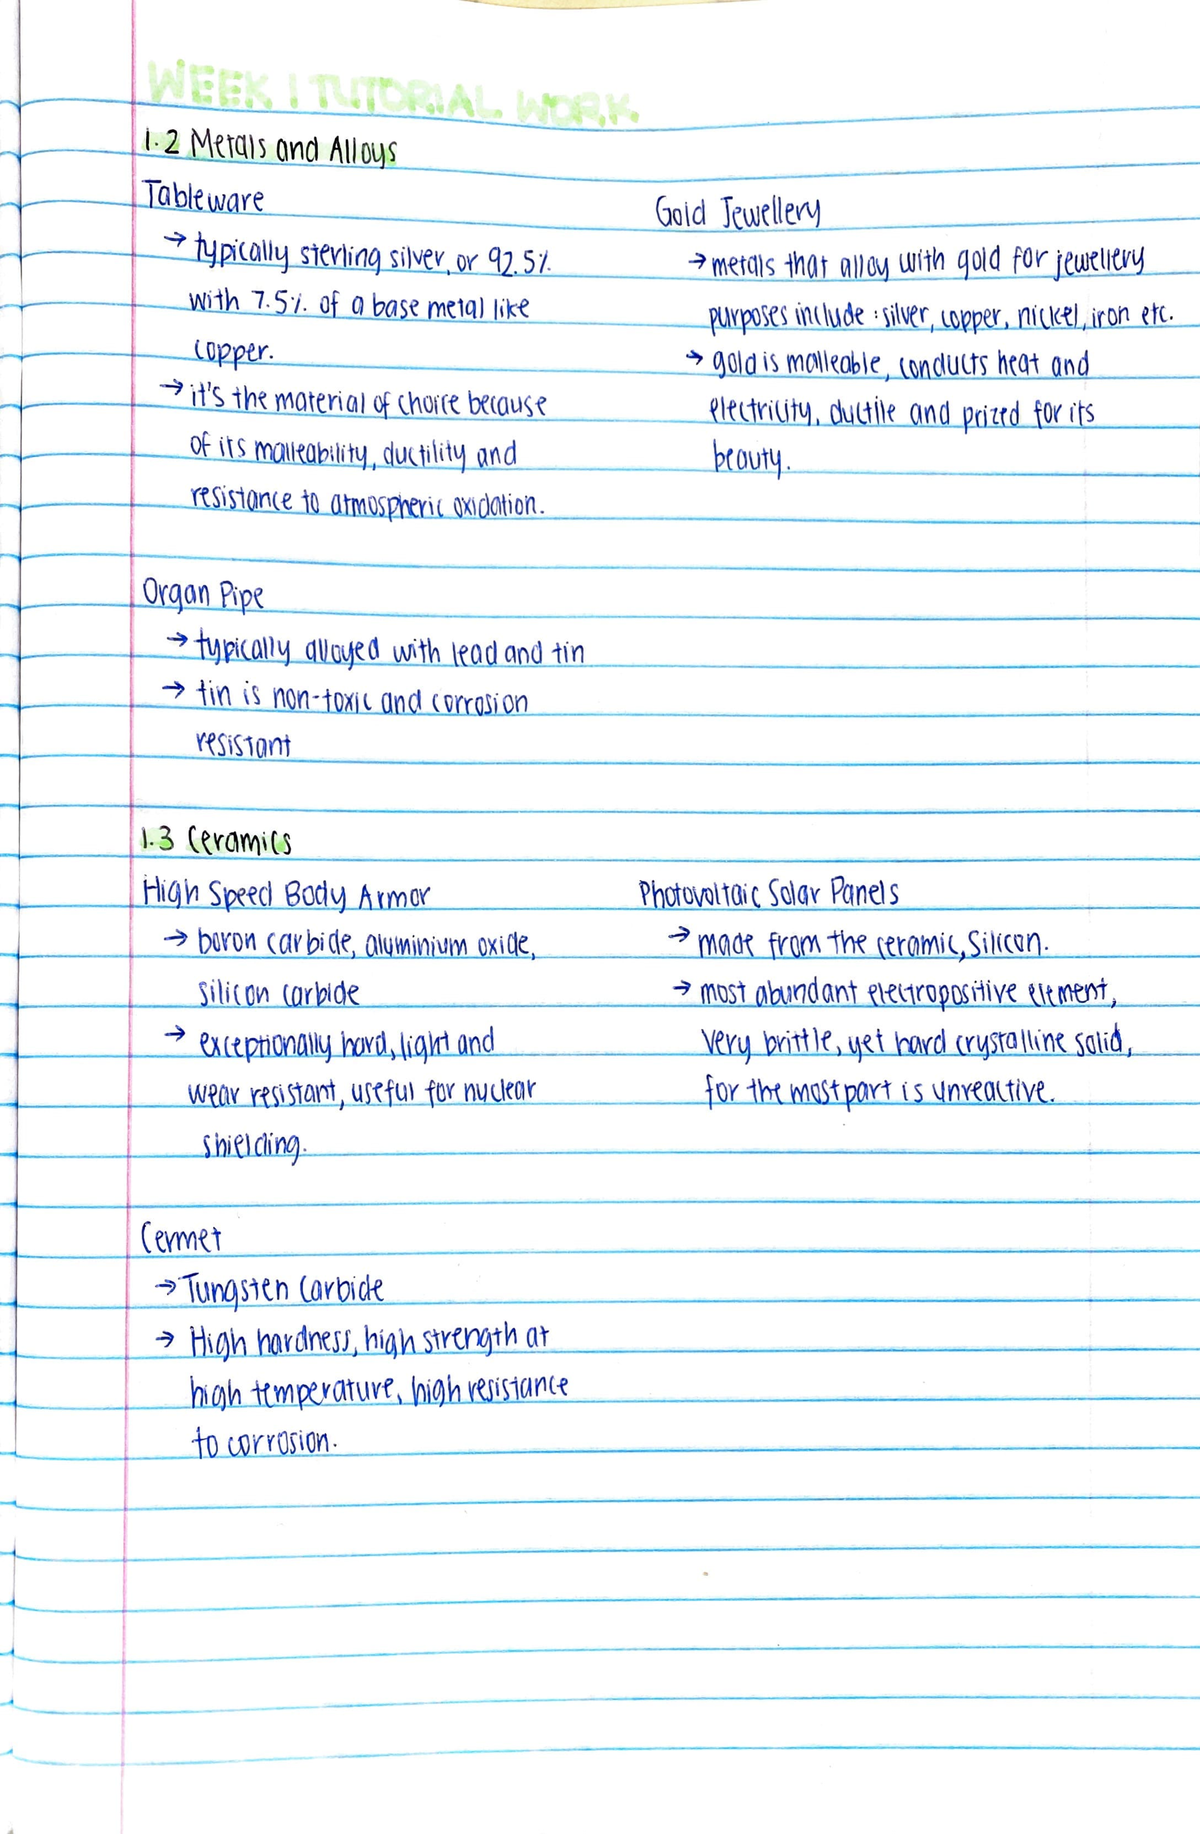 WEEK 1 TUTORIAL WORK.
1.2 Metals and Alloys
Tableware
→ typically sterling silver, or 92.5%
with 7.5% of a base metal like
copper.
→ it's the material of choice because
of its malleability, ductility and
resistance to atmospheric oxidation.
Gold Jewellery
→ metals that alloy with gold for jewellery
purposes include : silver, copper, nickel, iron etc.
→ gold is malleable, conducts heat and
electricity, ductile and prized for its
beauty.
Organ Pipe
→ typically alloyed with lead and tin
→ tin is non-toxic and corrosion
resistant
1.3 Ceramics
High Speed Body Armor
→ boron carbide, aluminium oxide,
silicon carbide
→ exceptionally hard, light and
wear resistant, useful for nuclear
shielding.
Photovoltaic Solar Panels
→ made from the ceramic, Silicon.
→ most abundant electropositive element,
very brittle, yet hard crystalline solid,
for the most part is unreactive.
Cermet
→ Tungsten Carbide
→ High hardness, high strength at
high temperature, high resistance
to corrosion.